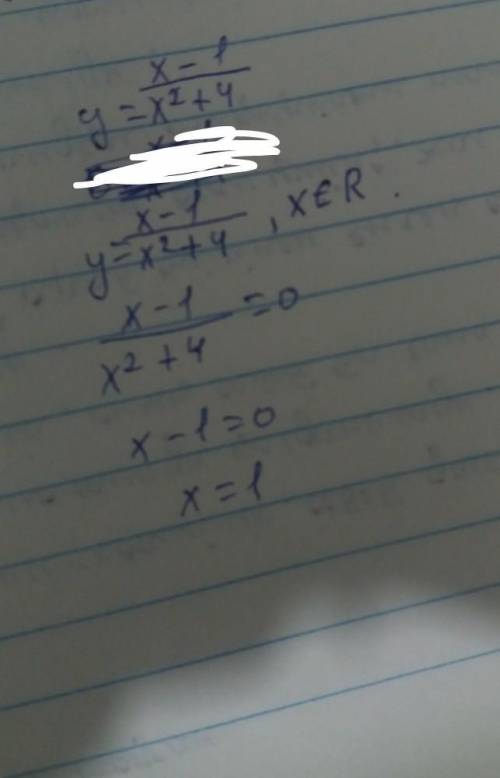 y = x - 1 / x² + 4
y = x - 1 / x² + 4 , x ∈ R .
x - 1 / x² + 4 = 0
x - 1 = 0
x = 1